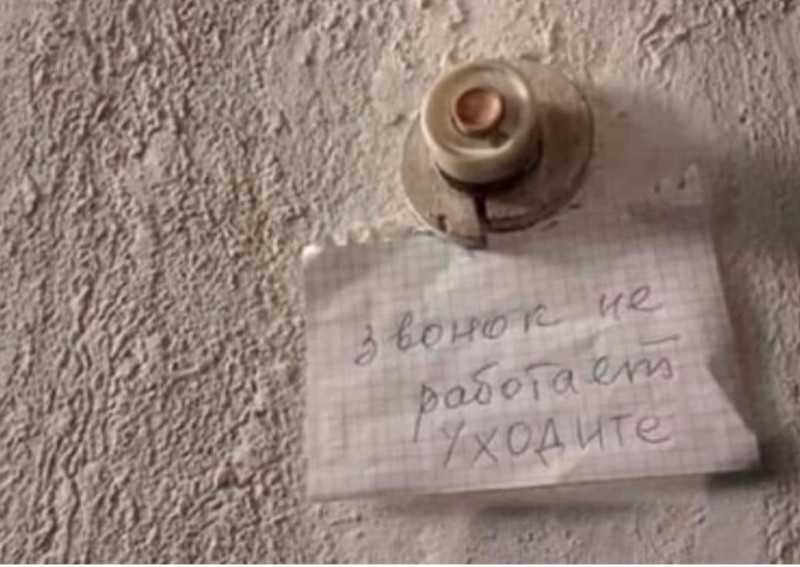 звонок не
работает
уходите